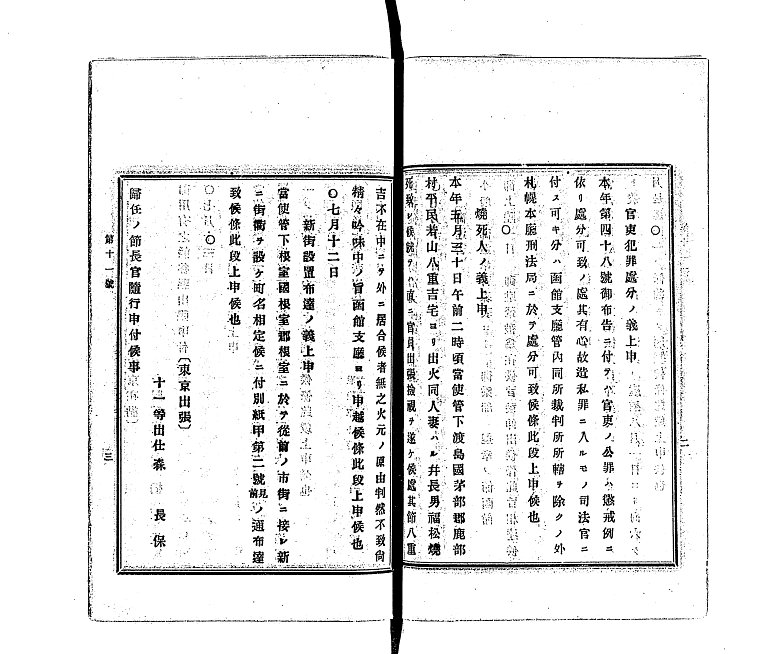 官吏犯罪處分ノ義上申
本年第四十八號御布告ニ付テハ官吏ノ公罪ハ懲戒例ニ
依リ處分可致ノ處其有心故造私罪ニ入ルモノ司法官ニ
付ス可キ分ハ函館支廳管內同所裁判所所轄ヲ除クノ外
札幌本廳刑法局ニ於テ處分可致候條此段上申候也
〇
燒死人ノ義上申
本年五月三十日午前二時頃當使管下渡島國茅部郡鹿部
村平民若山八重吉宅ヨリ出火同人妻ハル幷長男福松燒
死致シ候ニ官員出張檢視ヲ遂ケ候處其節八重
二
吉不在中ニテ外ニ居合候者無之火元ノ原由判然不致尙
精々吟味中ノ旨函館支廳ヨリ申越候條此段上申候也
〇七月十二日
新街設置布達ノ義上申
當使管下根室國根室郡根室ニ於テ從前ノ市街ニ接シ新
ニ街衢ヲ設ケ町名相定候ニ付別紙甲第二號見前ノ通布達
致候條此段上申候也
〇
〔東京出張〕
十一等出仕 森 長保
歸任ノ節長官隨行申付候事
第十一號
三